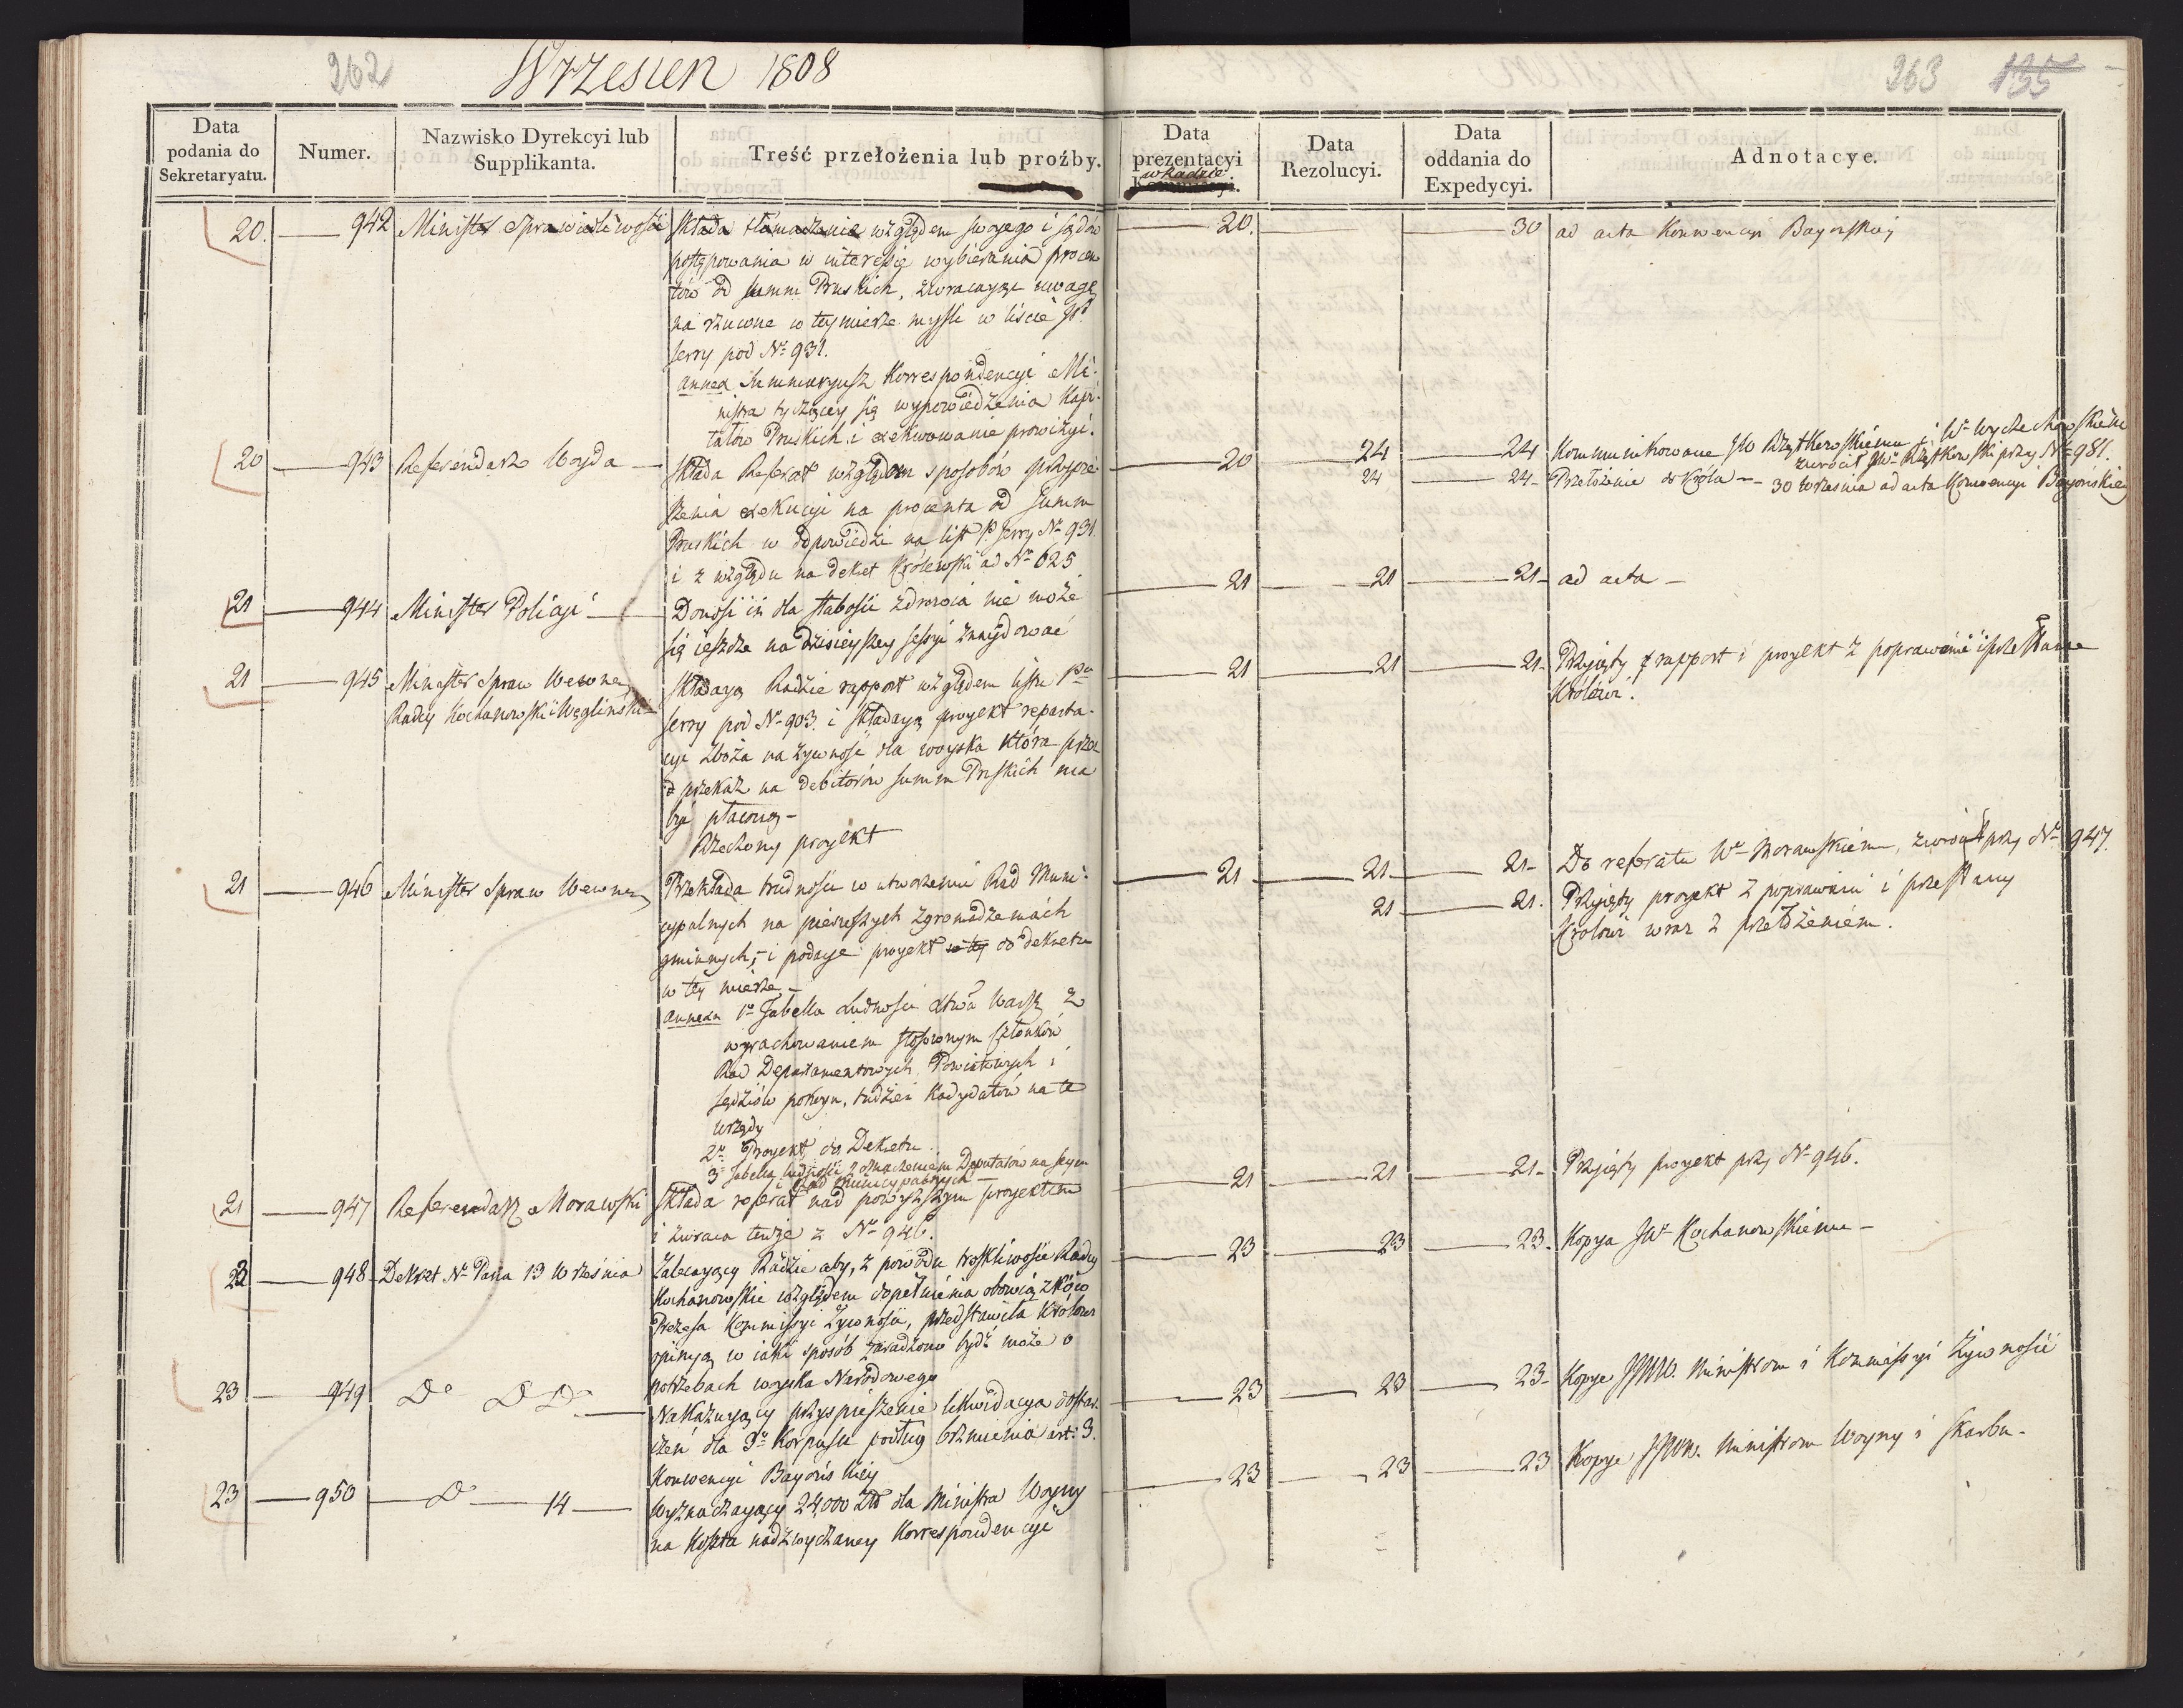 262
Wrzesień 1808
263 135
Data podania do Sekretaryatu.
Numer.
Nazwisko Dyrekcyi lub Supplikanta.
Treść przełożenia lub proźby.
Data prezentacyi w Radzie Kommissyi.
Data Rezolucyi.
Data oddania do Expedycyi.
Adnotacye.
20. 942 Minister Sprawiedliwości Składa tłumaczenie względem swojego i sądów 20. 30 ad acta Konwencyi Bayońskiej
postępowania w interesie wybierania procen
tów od summ Pruskich, zwracając uwagę
na rzucone w tey mierze myśli w liście JP.
Serry pod No 931.
annex Summaryusz Korrespondencyi Mi-
nistra tyczącey się wypowiedzenia Kapi-
tałów Pruskich i exekwowanie prowizyi.
20 943 Referendarz Woyda Składa Referat względem sposobów przyspie- 20 24 24 Kommunikowane JW Rzętkowskiemu i Wu Wyczechowskiemu
zwrócił JW Rzętkowski przy No 981.
szenia exekucyi na procenta od Summ 24 24 Przełożenie do Króla — 30 Września ad acta Konwencyi Bayońskiey
Pruskich w odpowiedzi na list P. Serry No 931
i z względu na dekret Królewski ad No 625
21 944 Minister Policyi Donosi iż dla słabości zdrowia nie może 21 21 21 ad acta
się ieszcze na dzisieyszey sessyi znaydować
21 945 Minister Spraw Wewnę Składają Radzie rapport względem listu Pa 21 21 21 Przyięty rapport i proyekt z poprawami i przesłane
Radcy Kochanowski i Węgliński Serry pod No 903. i składają proyekt reparta- Królowi.
cyi zboża na żywność dla woyska która przez
przekaz na debitorów summ Pruskich ma
być płacona —
Rzeczony proyekt
21 946 Minister Spraw Wewnę Przekłada trudności w utworzeniu Rad Muni- 21 21 21 Do referatu Wu Morawskiemu, zwrócił przy No 947.
cypalnych na pierwszych zgromadzeniach 21 21. Przyięty proyekt z poprawami i przesłany
gminnych, i podaje proyekt do dekretu Królowi wraz z przełożeniem.
w tey mierze —
annexa 1o Tabella Ludności Xtwa Warsz z
wyrachowaniem stosownym członków
Rad Departamentowych Powiatowych i
sędziów pokoju, tudzież Kadydatów na te
urzędy
2o Proyekt do Dekretu.
3o Tabella ludności z oznaczeniem Deputatów na Seym
i Rad municypalnych
21 947 Referendarz Morawski Składa referat nad powyższym proyektem 21 21 21 Przyięty proyekt przy No 946.
i zwraca tenże z No 946.
23 948 Dekret N. Pana 13 Września Zalecający Radzie aby, z powodu troskliwości Radcy 23 23 23. Kopya JW Kochanowskiemu —
Kochanowskie względem dopełnienia obowiązków
Prezesa Kommissyi Żywności, przedstawiła Królowi
opinyą w iaki sposób zaradzono bydź może o
potrzebach woyska Narodowego
23 949 Do D Do Nakazujący przyspieszenie likwidacya dostar- 23 23 23 Kopye JJWW. Ministrom i Kommissyi Żywności
czeń dla 3o Korpusu podług brzmienia art: 3.
Konwencyi Bayońskiey
23 950 Do 14 Wyznaczający 24,000 Złl dla Ministra Woyny 23 23 23 Kopye JJWW. Ministrom Woyny i Skarbu.
na Koszta nadzwyczayney Korrespondencyi